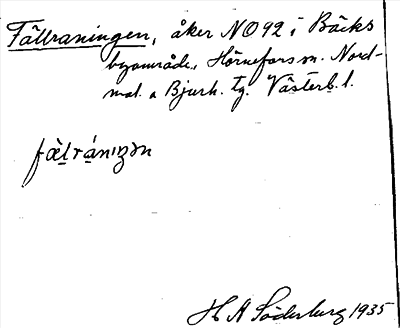 Fällraningen, åker NO92 i Bäcks
byområde, Hörnefors sn. Nord-
mal. o Bjurh. tg. Västerb. l.
fæ̀ḷrá̱nıŋən
H A Söderberg 1935